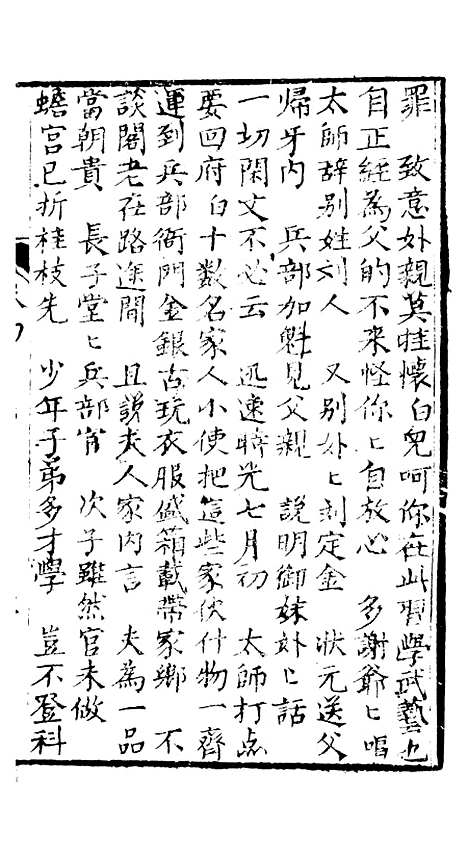 罪　致意外親莫挂懷白兒呵你在此習學武藝也
自正經為父的不来怪你〻自放心　多謝爺〻唱
太師辞别姓刘人　又别外〻刘定金　狀元送父
帰牙内　兵部加魁見父親　說明御妹外〻話
一切閑文不必云　迅速時光七月初　太師打点
要回府白十數名家人小使把這些家伙什物一齊
運到兵部衙門金銀古玩衣服盛箱載帶家鄉　不
談閣老在路途間　且說夫人家内言　夫為一品
當朝貴　長子堂〻兵部官　次子雖然官未做
蟾宫已折桂枝先　少年子弟多才學　豈不登科